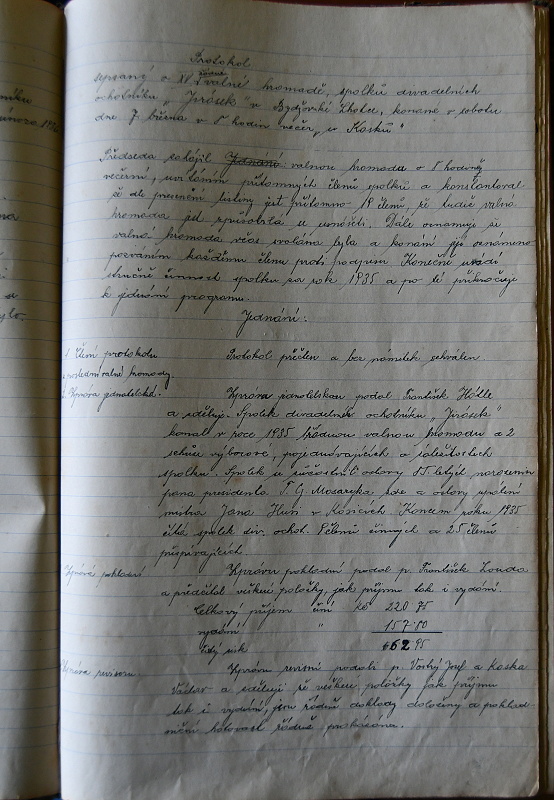 Protokol
sepsaný o XV. řádné valné hromadě, spolku divadelních
ochotníků "Jirásek" v Bydžovské Lhotce, konané v sobotu
dne 7 března v 8 hodin večer, "u Kosků"
Předseda zahájil Jednání valnou hromadu o 8 hodině
večerní, uvítáním přítomných členů spolku a konstatoval
že dle presenční listiny jest přítomno 18 členů, že tudíž valná
hromada jest způsobilá se usnášeti. Dále oznamuje že
valná hromada včas svolána byla a konání její oznámeno
pozváním každému členu proti podpisu Konečně uvádí
stručně činnost spolku za rok 1935 a po té přikročuje
k jednání programu.
Jednání:
1 Čtení protokolu
z poslední valné hromady
Protokol přečten a bez námitek schválen
2. Zpráva jednatelská.
Zprávu jednatelskou podal František Hölle
a sděluje. Spolek divadelních ochotníků "Jirásek"
konal v roce 1935 řádnou valnou hromadu a 2
schůze výborové, pojednávajících o záležitostech
spolku. Spolek se súčastnil oslavy 85 letých narozenin
pana presidenta T. G. Masaryka zde a oslavy upálení
mistra Jana Husi v Kosicích Koncem roku 1935
čítá spolek div. ochot. členů činných a 25 členů
přispívajících.
Zpráva pokladní
Zprávu pokladní podal p. František Louda
a předčítal veškeré položky, jak příjmu tak i vydání.
Celkový příjem činí Kč 220 75
vydání " 157.80
čistý zisk 62 95
Zpráva revisorů
Zprávu revisní podali p. Josef a Koska
Václav a sdělují že veškeré položky jak příjmu
tak i vydání, jsou řádně doklady doloženy a poklad-
niční hotovost řádně prokázána.